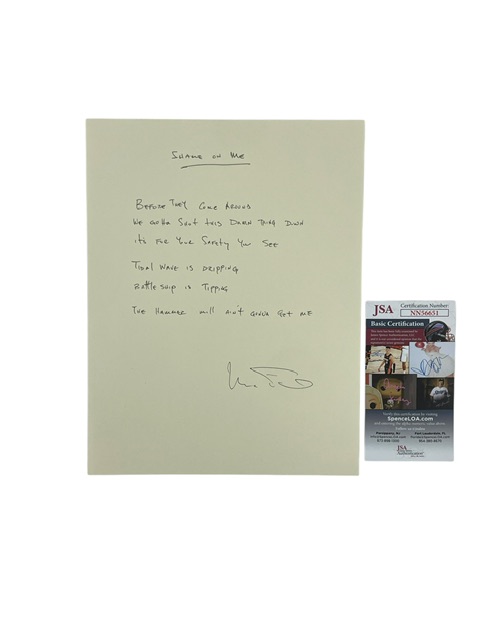 SHAME ON ME
BEFORE THEY COME AROUND
WE GOTTA SHUT THIS DAMN THING DOWN
it's FOR YOUR SAFETY YOU SEE
TIDAL WAVE IS DRIPPING
BATTLESHIP IS TIPPING
THE HAMMER MILL AIN'T GONNA GET ME
JSA
Certification Number:
NN56651
Basic Certification
SpenceLOA.com
Parsippany, NJ
JSA
Authentication